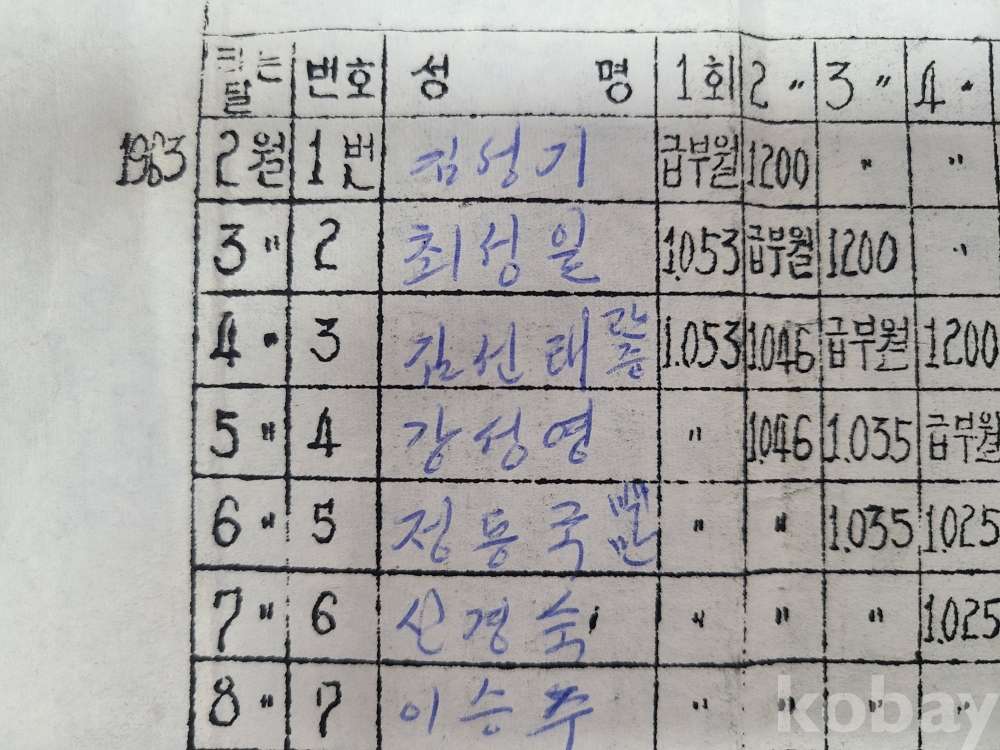 타는 달 번호 성 명 1회 2 〃 3 〃 4 〃
1983 2월 1번 김성기 급부월 1200 〃 〃
3 〃 2 최성월 1.053 급부월 1200 〃
4 〃 3 김선태 1.053 1.046 급부월 1200
5 〃 4 강성영 〃 1.046 1.035 급부월
6 〃 5 정동국 〃 〃 1.035 1.025
7 〃 6 신경숙 〃 〃 〃 1.025
8 〃 7 이승주 〃 〃 〃 〃
kobay